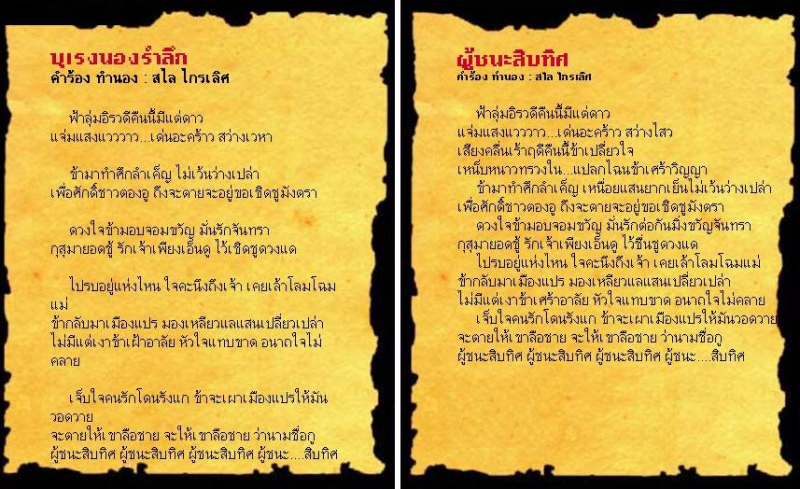 บุเรงนองรำลึก
คำร้อง ทำนอง : สไล ไกรเลิศ
ฟ้าลุ่มอิรวดีคืนนี้มีแต่ดาว
แจ่มแสงแวววาว...เด่นอะคร้าว สว่างเวหา
ข้ามาทำศึกลำเค็ญ ไม่เว้นว่างเปล่า
เพื่อศักดิ์ชาวตองอู ถึงจะตายจะอยู่ขอเชิดชูมังตรา
ดวงใจข้ามอบจอมขวัญ มั่นรักจันทรา
กุสุมายอดชู้ รักเจ้าเพียงเอ็นดู ไว้เชิดชูดวงแด
ไปรบอยู่แห่งไหน ใจคะนึงถึงเจ้า เคยเล้าโลมโฉม
แม่
ข้ากลับมาเมืองแปร มองเหลียวแลแสนเปลี่ยวเปล่า
ไม่มีแต่เงาข้าเฝ้าอาลัย หัวใจแทบขาด อนาถใจไม่
คลาย
เจ็บใจคนรักโดนรังแก ข้าจะเผาเมืองแปรให้มัน
วอดวาย
จะตายให้เขาลือชาย จะให้เขาลือชาย ว่านามชื่อกู
ผู้ชนะสิบทิศ ผู้ชนะสิบทิศ ผู้ชนะสิบทิศ ผู้ชนะ....สิบทิศ
ผู้ชนะสิบทิศ
คำร้อง ทำนอง : สไล ไกรเลิศ
ฟ้าลุ่มอิรวดีคืนนี้มีแต่ดาว
แจ่มแสงแวววาว...เด่นอะคร้าว สว่างไสว
เสียงคลื่นเร้าฤดีคืนนี้ข้าเปลี่ยวใจ
เหน็บหนาวทรวงใน...แปลกไฉนข้าเศร้าวิญญา
ข้ามาทำศึกลำเค็ญ เหนื่อยแสนยากเย็นไม่เว้นว่างเปล่า
เพื่อศักดิ์ชาวตองอู ถึงจะตายจะอยู่ขอเชิดชูมังตรา
ดวงใจข้ามอบจอมขวัญ มั่นรักต่อกันมิ่งขวัญจันทรา
กุสุมายอดชู้ รักเจ้าเพียงเอ็นดู ไว้ชื่นชูดวงแด
ไปรบอยู่แห่งไหน ใจคะนึงถึงเจ้า เคยเล้าโลมโฉมแม่
ข้ากลับมาเมืองแปร มองเหลียวแลแสนเปลี่ยวเปล่า
ไม่มีแต่เงาข้าเศร้าอาลัย หัวใจแทบขาด อนาถใจไม่คลาย
เจ็บใจคนรักโดนรังแก ข้าจะเผาเมืองแปรให้มันวอดวาย
จะตายให้เขาลือชาย จะให้เขาลือชาย ว่านามชื่อกู
ผู้ชนะสิบทิศ ผู้ชนะสิบทิศ ผู้ชนะสิบทิศ ผู้ชนะ....สิบทิศ